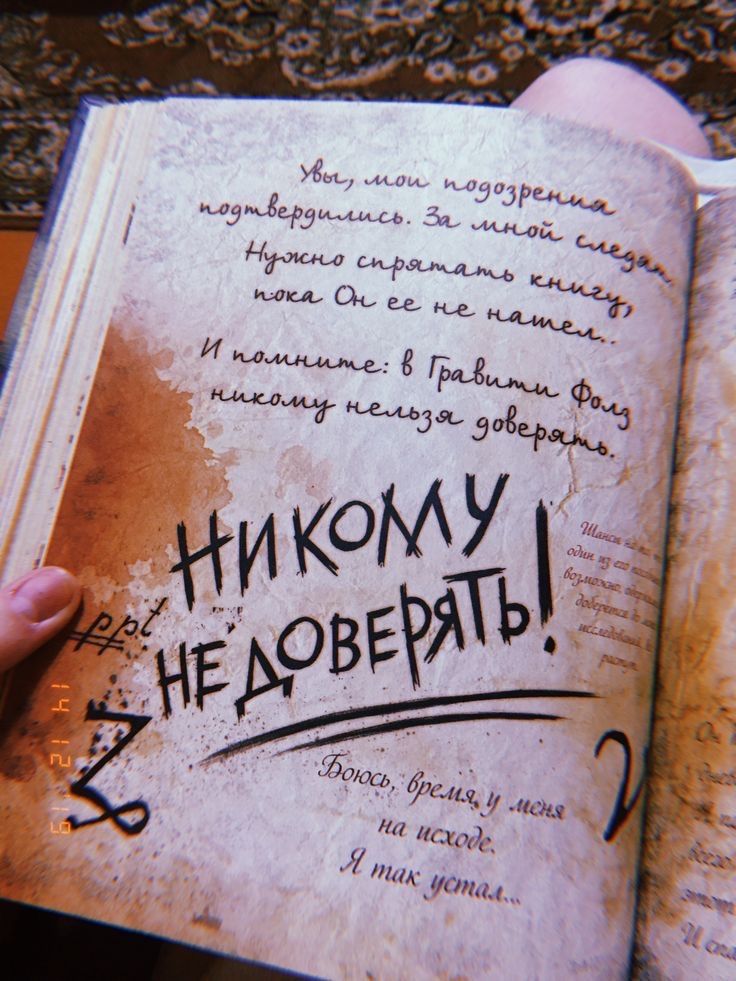 Увы, мои подозрения
подтвердились. За мной следят.
Нужно спрятать книгу,
пока Он ее не нашел..
И помните: в Гравити Фолз
никому нельзя доверять.
НИКОМУ
НЕ ДОВЕРЯТЬ!
ppt
Шансы
один из его
возможно,
доберется до
исследований.
растут.
Боюсь, время у меня
на исходе.
Я так устал...
14 12 '19
И